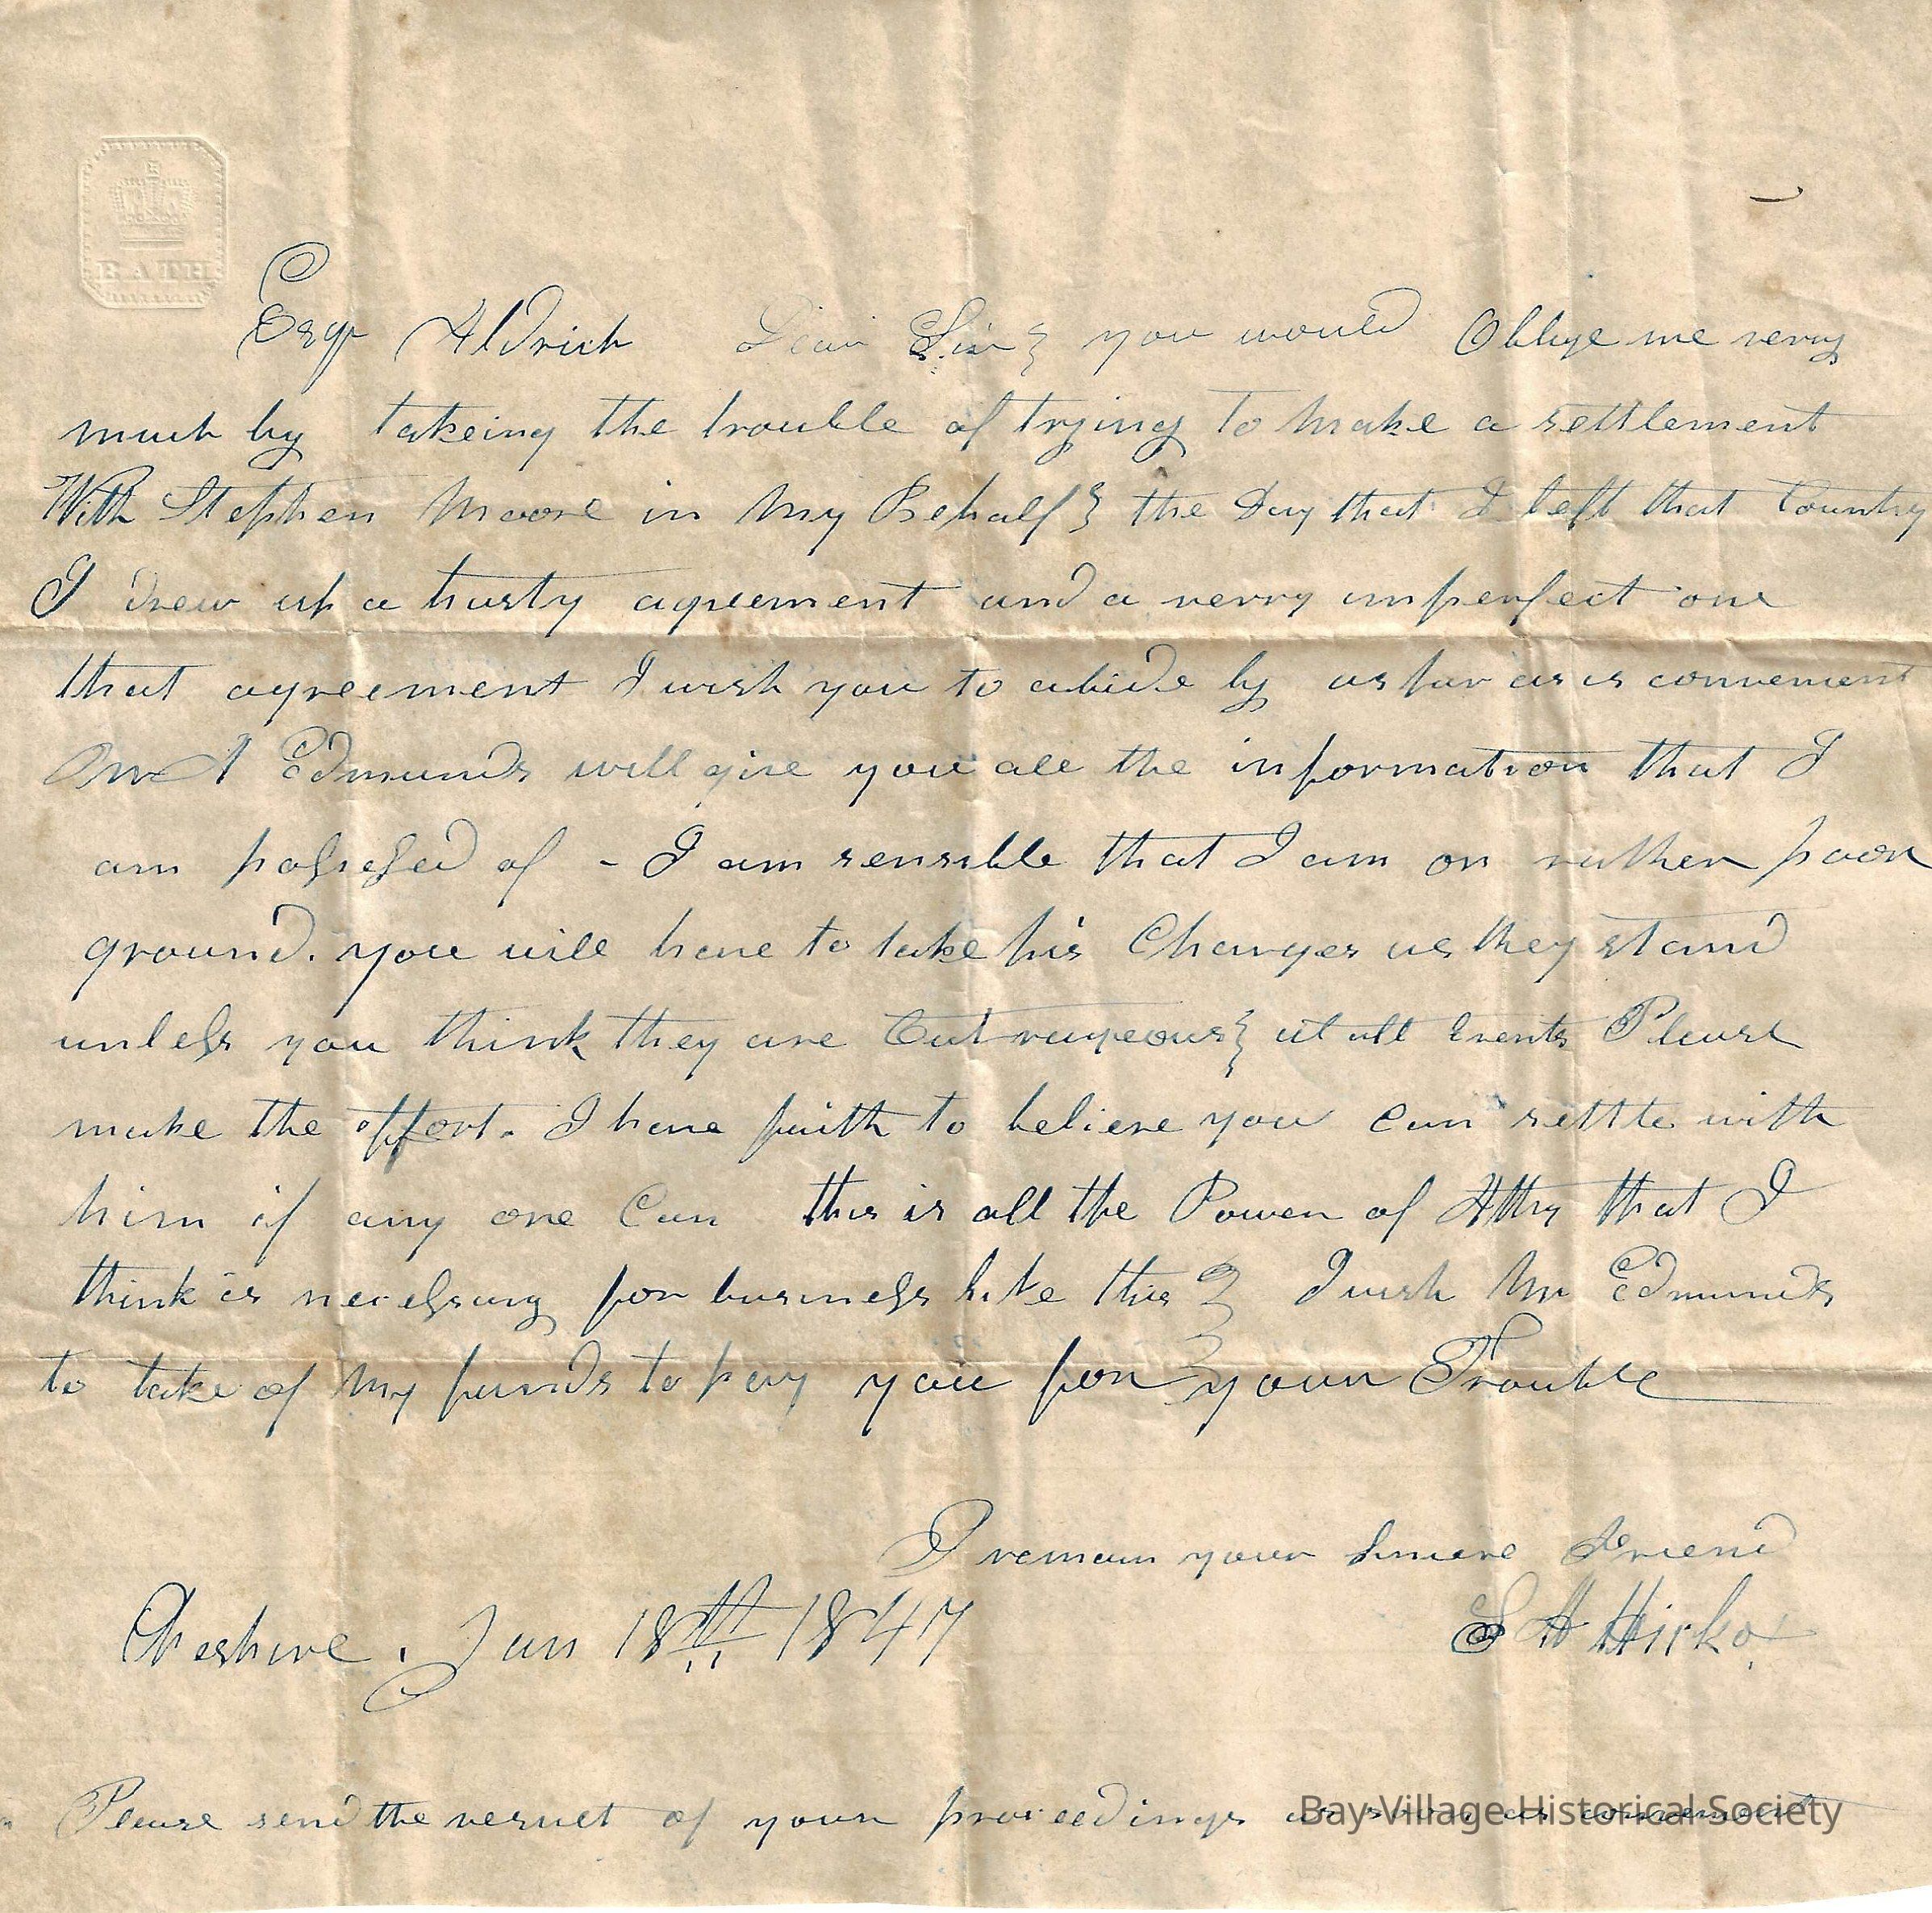 BATH
Esqr Aldrich Dear Sir you would Oblige me verry
much by takeing the trouble of trying To Make a settlement
With Stephen Moore in My Behalf the Day that I left that Country
I drew up a hasty agreement and a verry imperfect one
that agreement I wish you to abide by as far as is convenient
Edmunds will give you all the information that I
am possessed of - I am sensible that I am on rather poor
ground. you will have to take his Charges as they stand
unless you think they are Outrageous at all Events Please
make the effort. I have faith to believe you Can settle with
him if any one Can this is all the Power of Attry that I
think is necessary for business like this I wish Mr Edmunds
to take of My funds to pay you for your Trouble
I remain your Sincere Friend
Cheshire. Jan 18th 1847 S H Hickox
Please send the result of your proceedings as soon as convenient
Bay Village Historical Society